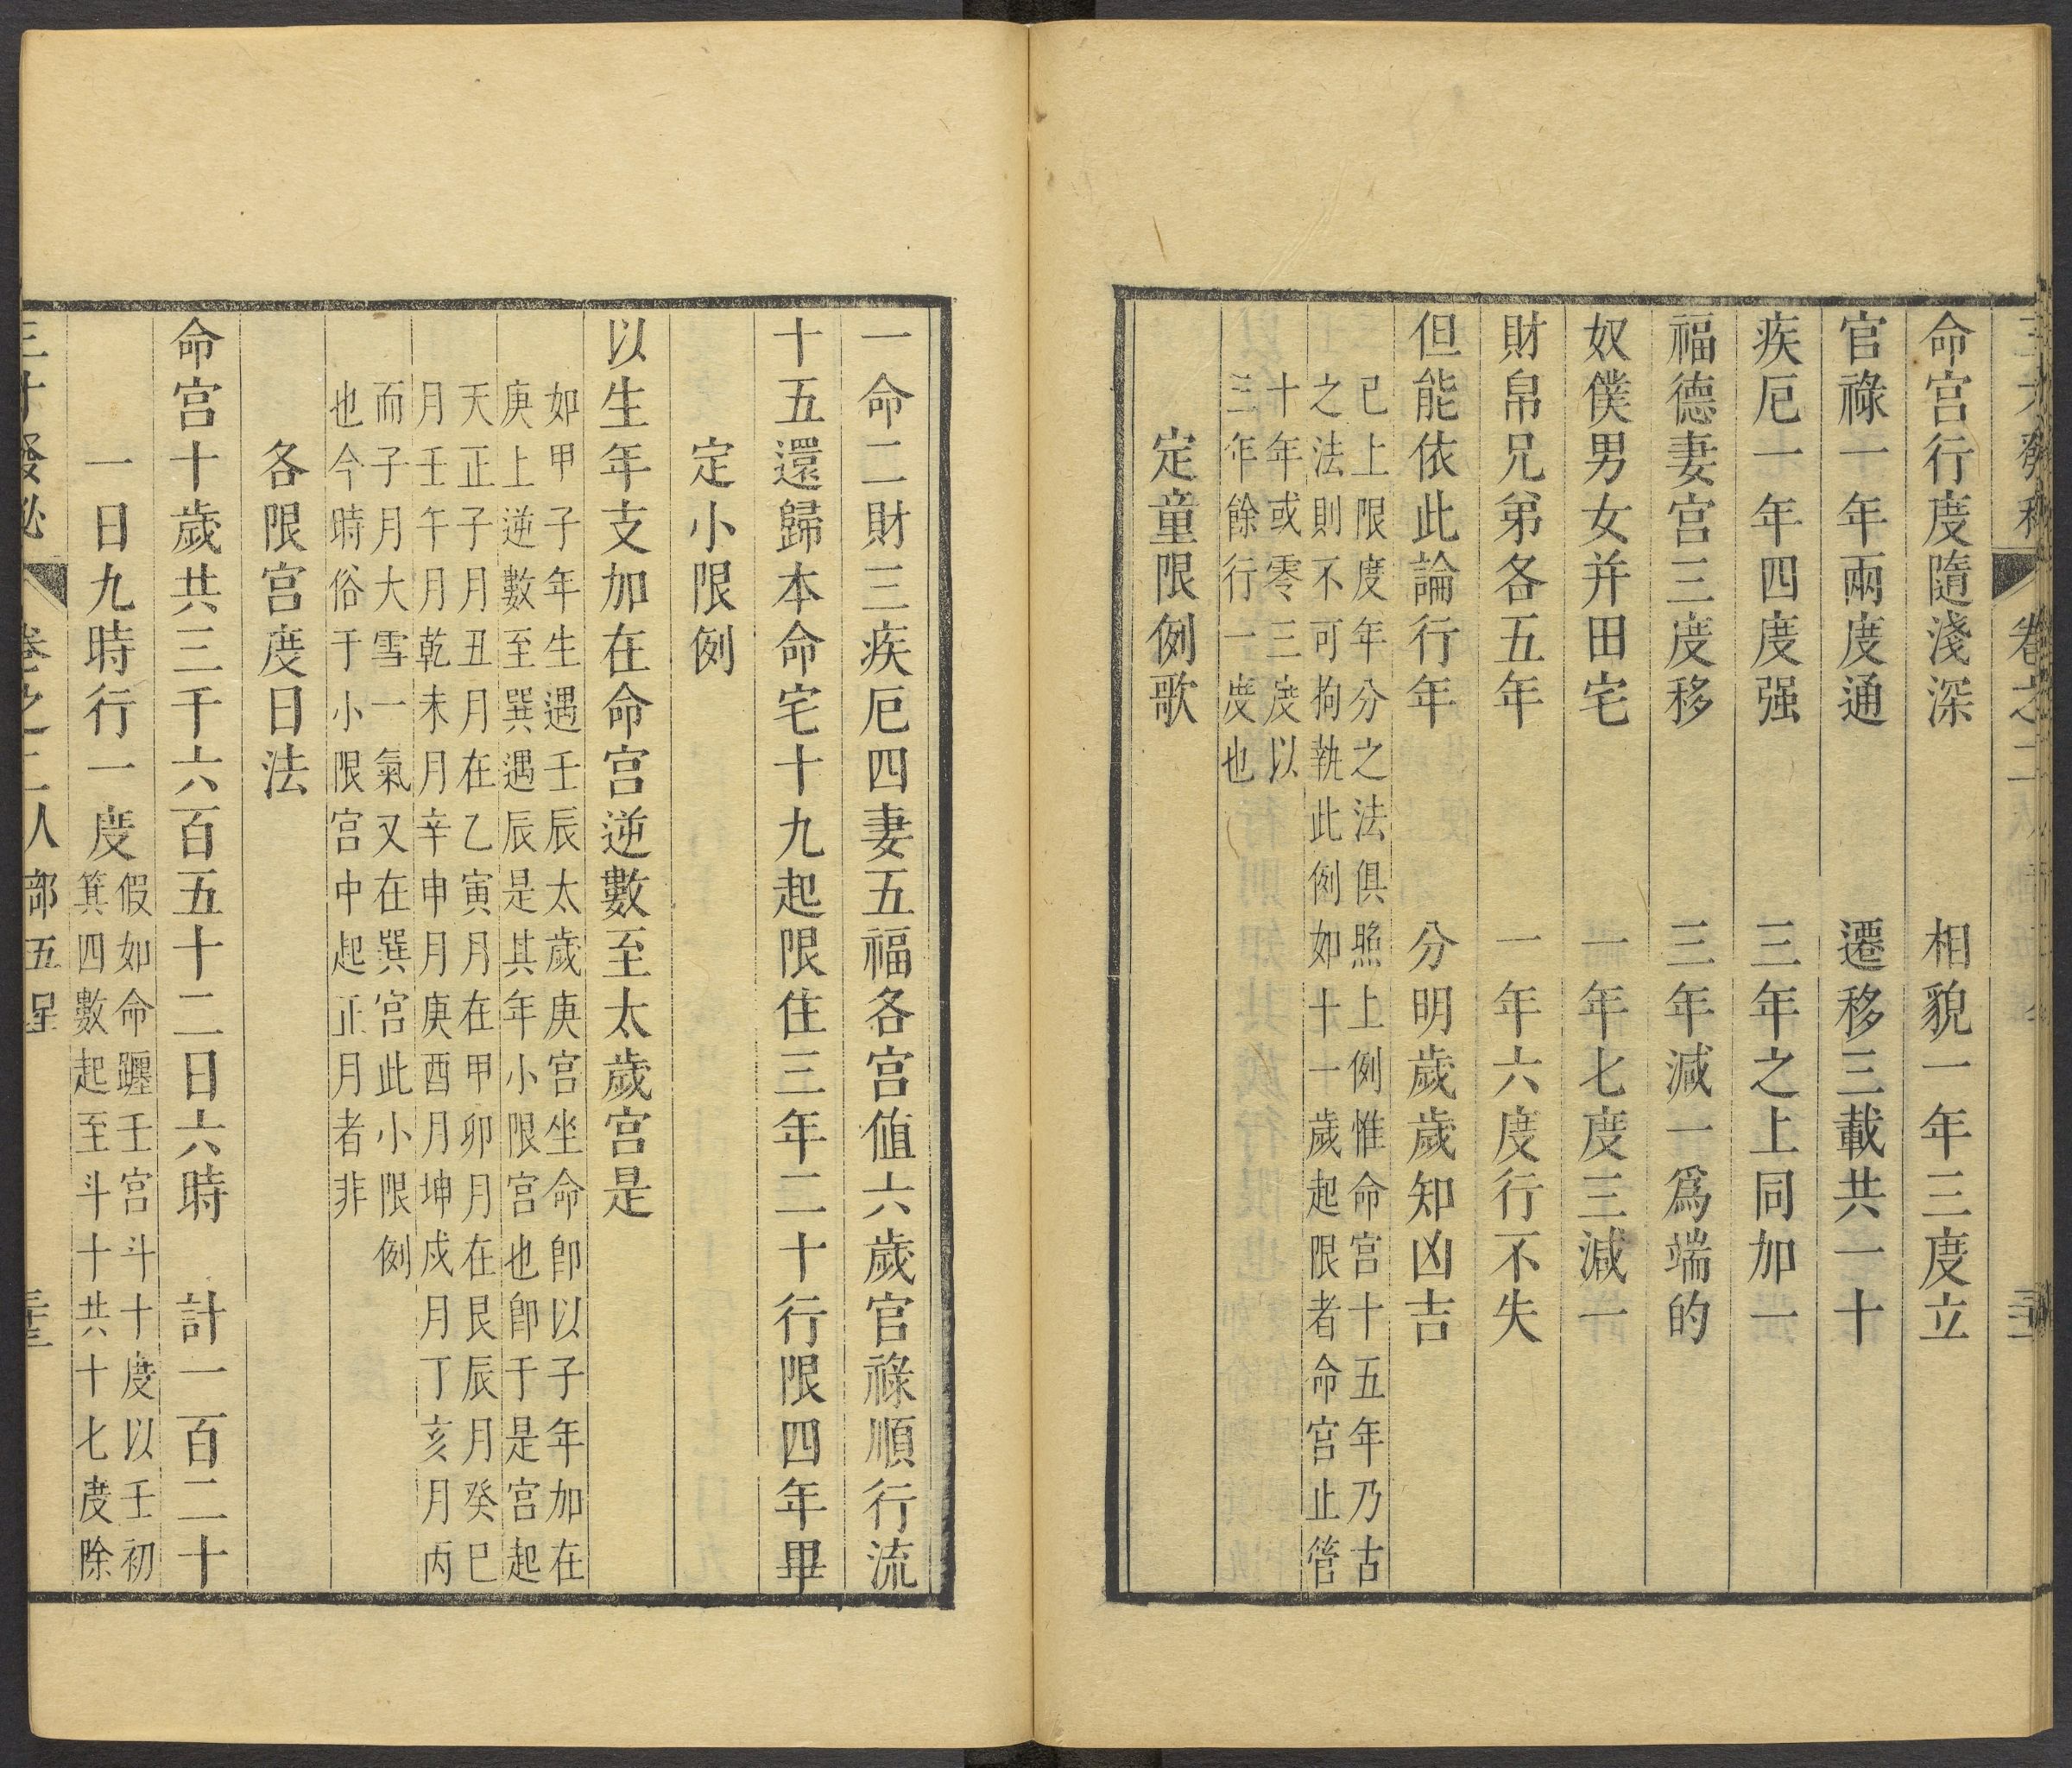 命宮行度隨淺深　相貌一年三度立
官祿一年兩度通　遷移三載共一十
疾厄一年四度强　三年之上同加一
福德妻宮三度移　三年減一爲端的
奴僕男女并田宅　一年七度三減一
財帛兄弟各五年　一年六度行不失
但能依此論行年　分明歲歲知凶吉
已上限度年分之法俱照上例惟命宮十五年乃古
之法則不可拘執此例如十一歲起限者命宮止管
十年或零三度以
三年餘行一度也
定童限例歌
一命二財三疾厄四妻五福各宮值六歲官祿順行流
十五還歸本命宅十九起限住三年二十行限四年畢
定小限例
以生年支加在命宮逆數至太歲宮是
如甲子年生遇壬辰太歲庚宮坐命卽以子年加在
庚上逆數至巽遇辰是其年小限宮也卽于是宮起
天正子月丑月在乙寅月在甲卯月在艮辰月癸巳
月壬午月乾未月辛申月庚酉月坤戍月丁亥月丙
而子月大雪一氣又在巽宮此小限例
也今時俗于小限宮中起正月者非
各限宮度日法
命宮十歲共三千六百五十二日六時　計一百二十
一日九時行一度
假如命躔壬宮斗十度以壬初
箕四數起至斗十共十七度除
三才發秘　卷之二人部五星